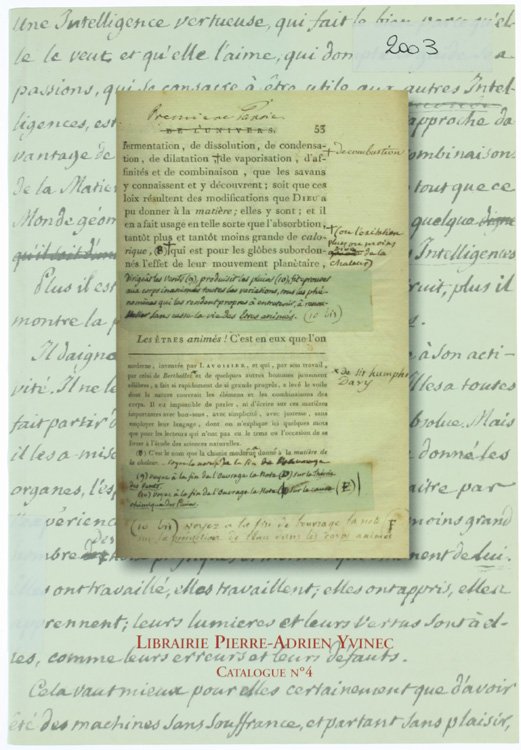 Une Intelligence vertueuse, qui fait le bien parce qu'el-
le le veut et qu'elle l'aime, qui dom
2003
passions, qui se consacre à être utile aux autres Intel-
ligences, est
approche da
vantage de
combinaisons
de la Matiè
tout que ce
Monde géom
quelque
qu'il
Intelligences
Plus il est
fruit, plus il
montre la p
Il daigne
à son acti-
vité. Il ne le
à toutes
fait partir d
brolue. Mais
il les a mise
donné les
organes, l'es
aitre par
expérience
moins grand
nombre
ment de lui.
Elles ont travaillé, elles travaillent; elles ont appris, elles ap
prennent; leurs lumieres et leurs vertus sont à el-
les, comme leurs erreurs et leurs défauts.
Cela vaut mieux pour elles certainement que d'avoir
été des machines sans souffrance, et partant sans plaisir,
Premiere Partie
DE L'UNIVERS. 53
fermentation, de dissolution, de condensa-
tion, de dilatation + de vaporisation, d'af-
+ de combustion
finités et de combinaison, que les savans
y connaissent et y découvrent; soit que ces
loix résultent des modifications que DIEU a
pu donner à la matière; elles y sont; et il
en a fait usage en telle sorte que l'absorbtion,
tantôt plus et tantôt moins grande de calo-
rique, (8) + qui est pour les globes subordon-
nés l'effet de leur mouvement planétaire,
+ (ou l'oxitation
plus ou moins
vive
de la
chaleur)
dirigeât les vents (9), produisit les pluies (10), fit éprouver
aux corps inanimés toutes les variations, tous les phé-
nomènes qui les rendent propres à entretenir, à renou-
veller sans cesse la vie des êtres animés. (10 bis)
Les ÊTRES animés! C'est en eux que l'on
moderne, inventée par LAVOISIER, et qui, par son travail,
par celui de Berthollet x et de quelques autres hommes justement
x de Sr humphry
Davy
célèbres, a fait si rapidement de si grands progrès, a levé le voile
dont la nature couvrait les élémens et les combinaisons des
corps. Il est impossible de parler, ni d'écrire sur ces matières
importantes avec bon-sens, avec simplicité, avec justesse, sans
employer leur langage, dont on n'explique ici quelques mots
que pour les lecteurs qui n'ont pas eu le tems ou l'occasion de se
livrer à l'étude des sciences naturelles.
(8) C'est le nom que la chimie moderne donne à la matière de
la chaleur. voyez la note à la fin de l'ouvrage
(9) voyez à la fin de l'Ouvrage la Note (D) sur la théorie
des vents.
(10) voyez à la fin de l'Ouvrage la Note (E) sur la cause
chimique des Pluies.
(10 bis) voyez à la fin de l'ouvrage la note F
sur la production de l'eau dans les corps animés
LIBRAIRIE PIERRE-ADRIEN YVINEC
CATALOGUE N°4